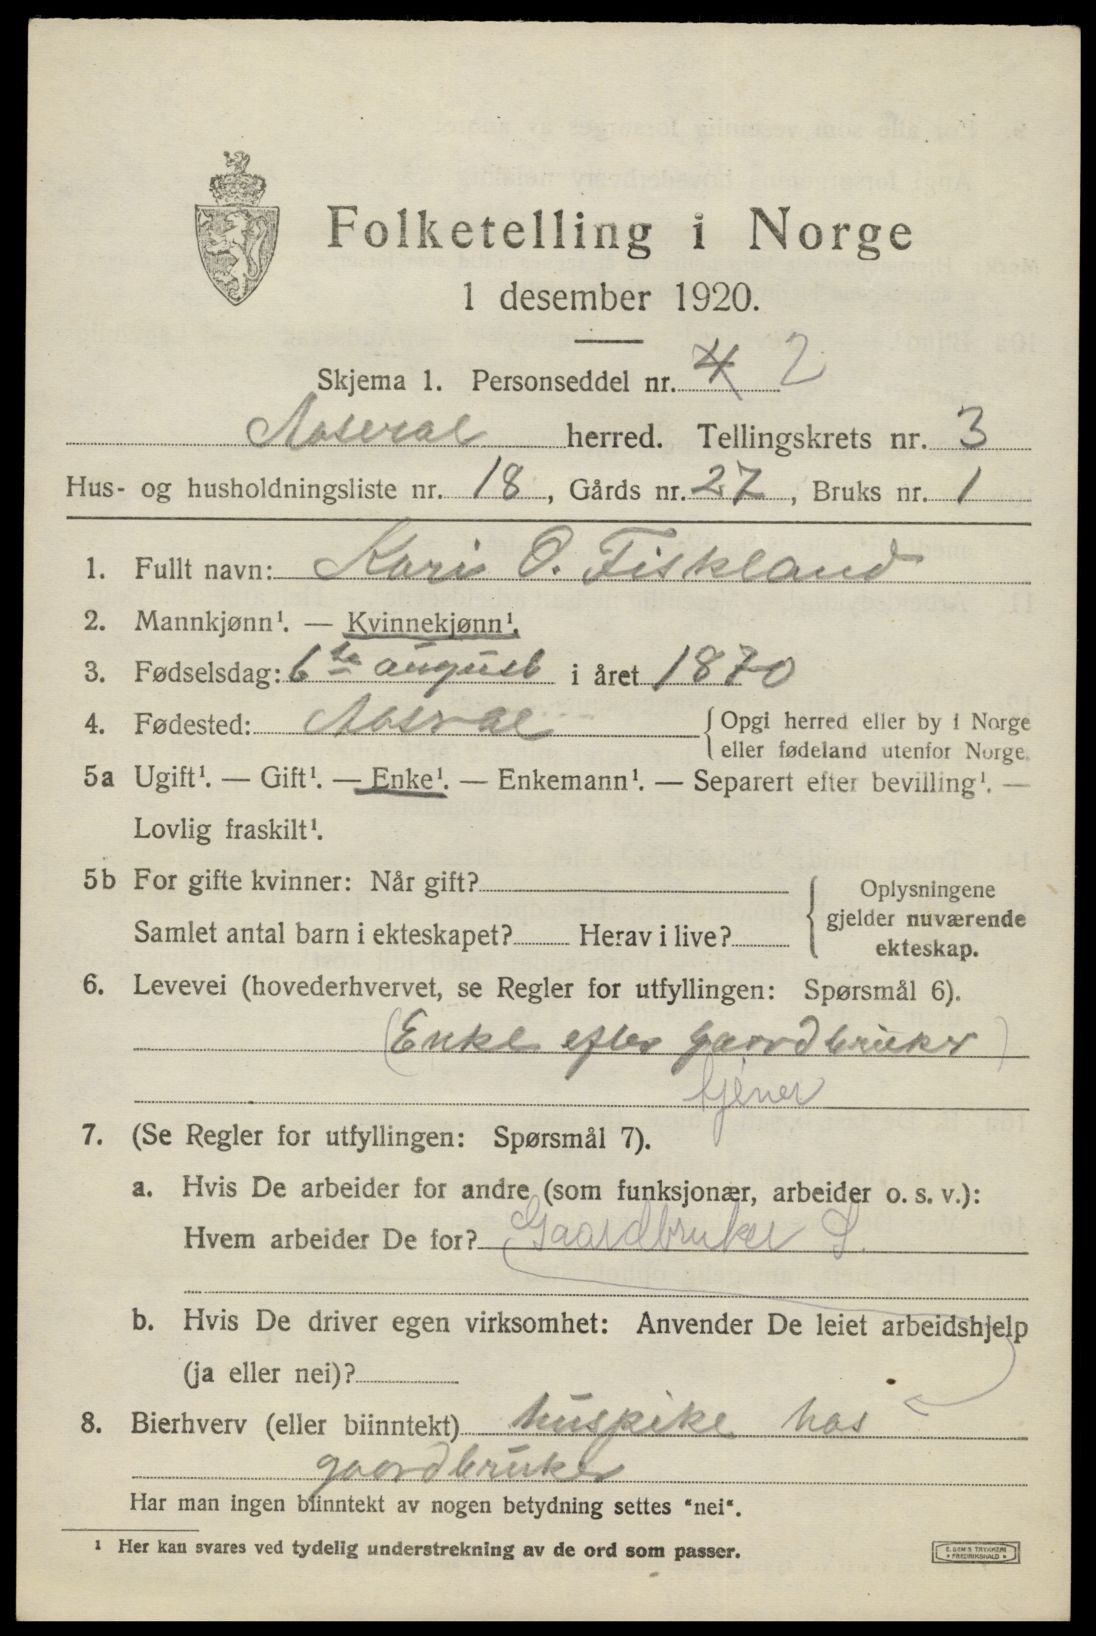 Folketelling i Norge
1 desember 1920.
Skjema 1. Personseddel nr. 4 2
Aaseral herred. Tellingskrets nr. 3
Hus- og husholdningsliste nr. 18, Gårds nr. 27, Bruks nr. 1
1. Fullt navn: Kari O. Fiskland
2. Mannkjønn¹. — Kvinnekjønn¹.
3. Fødselsdag: 6te august i året 1870
4. Fødested: Aasral {Opgi herred eller by i Norge
eller fødeland utenfor Norge.
5a Ugift¹. — Gift¹. — Enke¹. — Enkemann¹. — Separert efter bevilling¹. —
Lovlig fraskilt¹.
5b For gifte kvinner: Når gift?
Samlet antal barn i ekteskapet? Herav i live?
{Oplysningene
gjelder nuværende
ekteskap.
6. Levevei (hovederhvervet, se Regler for utfyllingen: Spørsmål 6).
(Enke efter gaardbruker)
tjener
7. (Se Regler for utfyllingen: Spørsmål 7).
a. Hvis De arbeider for andre (som funksjonær, arbeider o. s. v.):
Hvem arbeider De for? Gaardbruker S.
b. Hvis De driver egen virksomhet: Anvender De leiet arbeidshjelp
(ja eller nei)?
8. Bierhverv (eller biinntekt) huspike hos
gaardbruker
Har man ingen biinntekt av nogen betydning settes "nei".
¹ Her kan svares ved tydelig understrekning av de ord som passer.
E. SEM'S TRYKKERI
FREDRIKSHALD